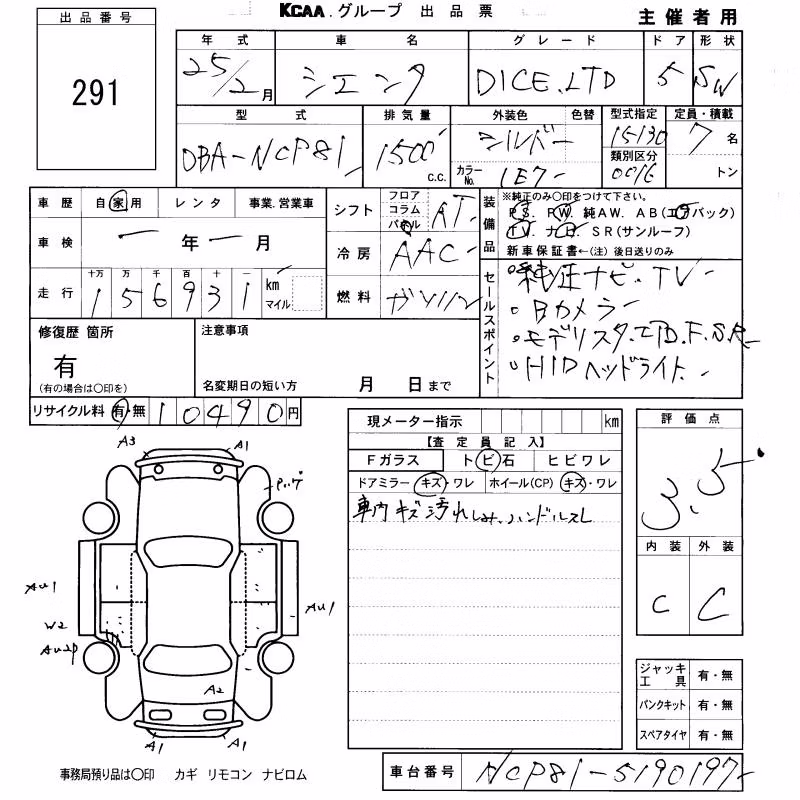 KCAA.グループ 出品票
主催者用
出品番号
291
年式 車名 グレード ドア 形状
25/2月 シエンタ DICE.LTD 5 SW
型式 排気量 外装色 色替 型式指定 定員・積載
DBA-NCP81 1500 c.c. シルバー 15130 7名
カラーNo. 1E7 類別区分 0016 トン
車歴 自家用 レンタ 事業.営業車
シフト フロア コラム パネル AT
装備品
※純正のみ○印をつけて下さい。
PS. PW. 純AW. AB(エアバック)
TV. ナビ. SR(サンルーフ)
新車保証書←(注) 後日送りのみ
車検 ー年ー月
冷房 AAC
走行 十万 万 千 百 十 一
156931 km マイル
燃料 ガソリン
セールスポイント
・純正ナビ.TV
・Bカメラ
・モデリスタ.エアロ.F.S.R
・HIDヘッドライト.
修復歴 箇所
有
(有の場合は○印を)
注意事項
名変期日の短い方 月 日まで
リサイクル料 有・無 10490円
現メーター指示 km
【査定員記入】
Fガラス トビ石 ヒビワレ
ドアミラー キズ・ワレ ホイール(CP) キズ・ワレ
車内キズ汚れしみ.ハンドルスレ
評価点
3.5
内装 外装
C C
A3 A1
AU1
W2
AU1
A2
A1 A1
ジャッキ工具 有・無
パンクキット 有・無
スペアタイヤ 有・無
事務局預り品は○印 カギ リモコン ナビロム
車台番号 NCP81-5190197